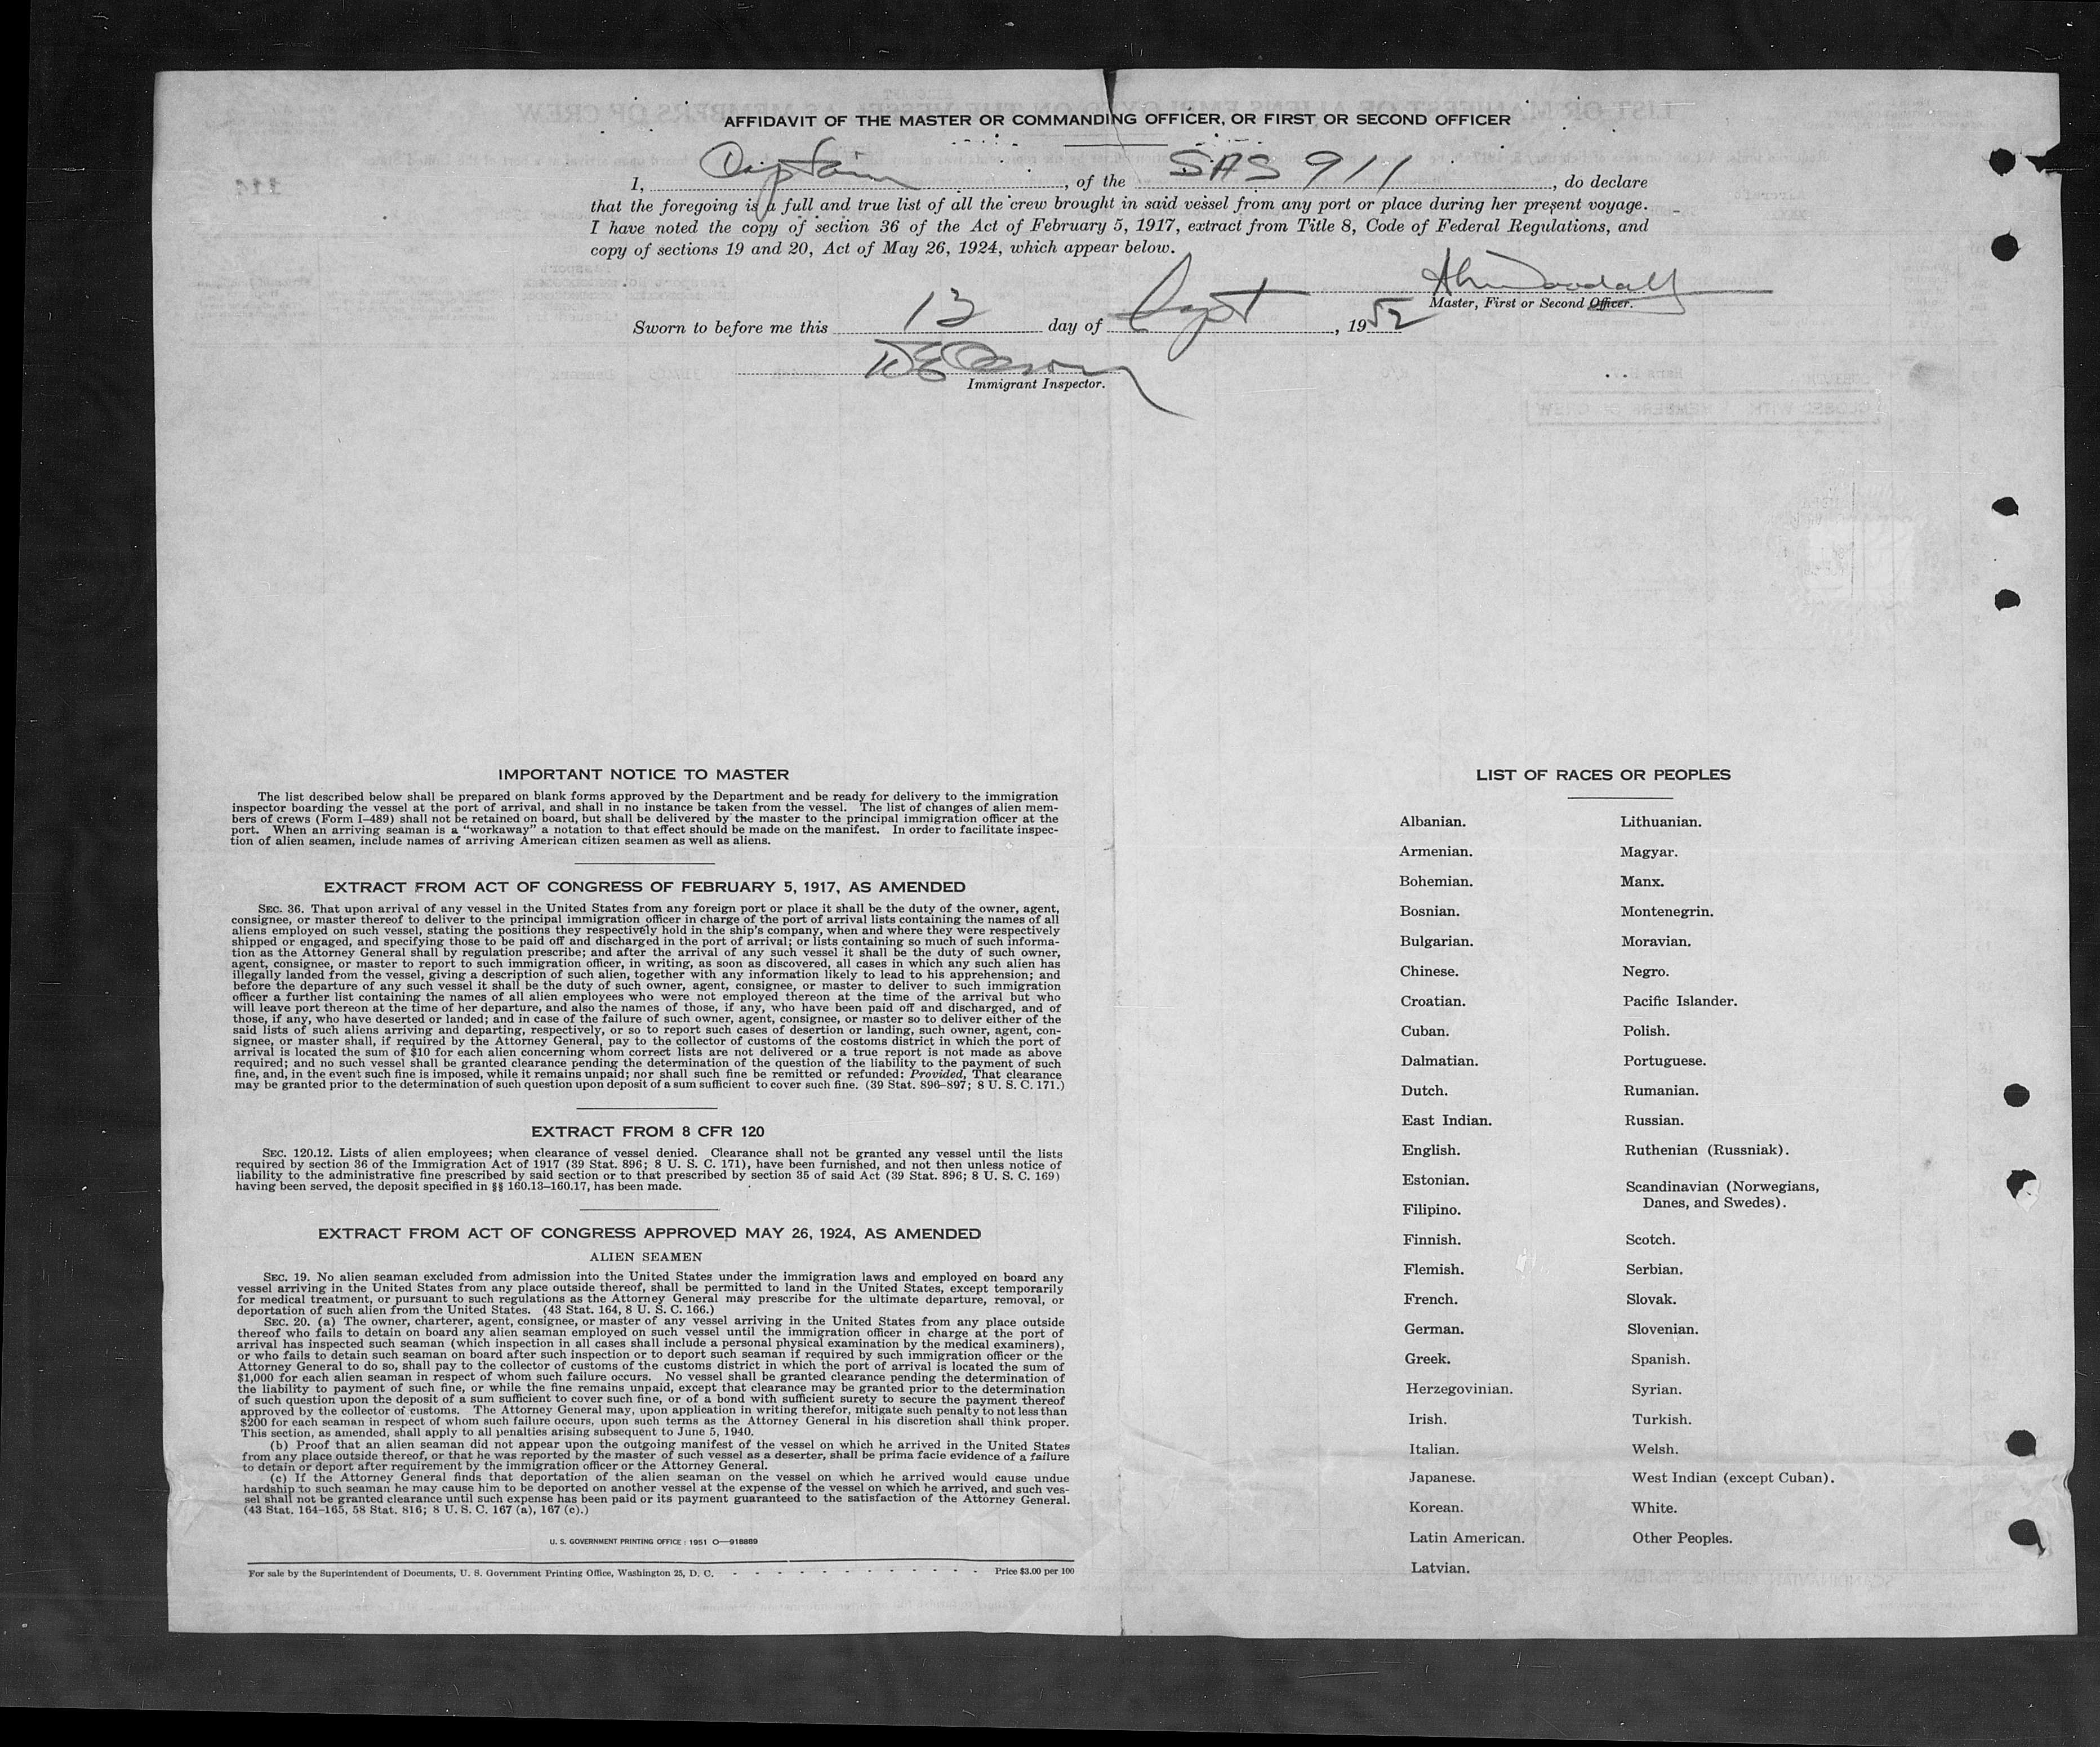 AFFIDAVIT OF THE MASTER OR COMMANDING OFFICER, OR FIRST OR SECOND OFFICER
I, Captain, of the SAS 911, do declare
that the foregoing is a full and true list of all the crew brought in said vessel from any port or place during her present voyage.
I have noted the copy of section 36 of the Act of February 5, 1917, extract from Title 8, Code of Federal Regulations, and
copy of sections 19 and 20, Act of May 26, 1924, which appear below.
Master, First or Second Officer.
Sworn to before me this 13 day of Sept, 1952
Immigrant Inspector.
IMPORTANT NOTICE TO MASTER
The list described below shall be prepared on blank forms approved by the Department and be ready for delivery to the immigration
inspector boarding the vessel at the port of arrival, and shall in no instance be taken from the vessel. The list of changes of alien mem-
bers of crews (Form I–489) shall not be retained on board, but shall be delivered by the master to the principal immigration officer at the
port. When an arriving seaman is a “workaway” a notation to that effect should be made on the manifest. In order to facilitate inspec-
tion of alien seamen, include names of arriving American citizen seamen as well as aliens.
EXTRACT FROM ACT OF CONGRESS OF FEBRUARY 5, 1917, AS AMENDED
SEC. 36. That upon arrival of any vessel in the United States from any foreign port or place it shall be the duty of the owner, agent,
consignee, or master thereof to deliver to the principal immigration officer in charge of the port of arrival lists containing the names of all
aliens employed on such vessel, stating the positions they respectively hold in the ship's company, when and where they were respectively
shipped or engaged, and specifying those to be paid off and discharged in the port of arrival; or lists containing so much of such informa-
tion as the Attorney General shall by regulation prescribe; and after the arrival of any such vessel it shall be the duty of such owner,
agent, consignee, or master to report to such immigration officer, in writing, as soon as discovered, all cases in which any such alien has
illegally landed from the vessel, giving a description of such alien, together with any information likely to lead to his apprehension; and
before the departure of any such vessel it shall be the duty of such owner, agent, consignee, or master to deliver to such immigration
officer a further list containing the names of all alien employees who were not employed thereon at the time of the arrival but who
will leave port thereon at the time of her departure, and also the names of those, if any, who have been paid off and discharged, and of
those, if any, who have deserted or landed; and in case of the failure of such owner, agent, consignee, or master so to deliver either of the
said lists of such aliens arriving and departing, respectively, or so to report such cases of desertion or landing, such owner, agent, con-
signee, or master shall, if required by the Attorney General, pay to the collector of customs of the costoms district in which the port of
arrival is located the sum of $10 for each alien concerning whom correct lists are not delivered or a true report is not made as above
required; and no such vessel shall be granted clearance pending the determination of the question of the liability to the payment of such
fine, and, in the event such fine is imposed, while it remains unpaid; nor shall such fine be remitted or refunded: Provided, That clearance
may be granted prior to the determination of such question upon deposit of a sum sufficient to cover such fine. (39 Stat. 896–897; 8 U. S. C. 171.)
EXTRACT FROM 8 CFR 120
SEC. 120.12. Lists of alien employees; when clearance of vessel denied. Clearance shall not be granted any vessel until the lists
required by section 36 of the Immigration Act of 1917 (39 Stat. 896; 8 U. S. C. 171), have been furnished, and not then unless notice of
liability to the administrative fine prescribed by said section or to that prescribed by section 35 of said Act (39 Stat. 896; 8 U. S. C. 169)
having been served, the deposit specified in §§ 160.13–160.17, has been made.
EXTRACT FROM ACT OF CONGRESS APPROVED MAY 26, 1924, AS AMENDED
ALIEN SEAMEN
SEC. 19. No alien seaman excluded from admission into the United States under the immigration laws and employed on board any
vessel arriving in the United States from any place outside thereof, shall be permitted to land in the United States, except temporarily
for medical treatment, or pursuant to such regulations as the Attorney General may prescribe for the ultimate departure, removal, or
deportation of such alien from the United States. (43 Stat. 164, 8 U. S. C. 166.)
SEC. 20. (a) The owner, charterer, agent, consignee, or master of any vessel arriving in the United States from any place outside
thereof who fails to detain on board any alien seaman employed on such vessel until the immigration officer in charge at the port of
arrival has inspected such seaman (which inspection in all cases shall include a personal physical examination by the medical examiners),
or who fails to detain such seaman on board after such inspection or to deport such seaman if required by such immigration officer or the
Attorney General to do so, shall pay to the collector of customs of the customs district in which the port of arrival is located the sum of
$1,000 for each alien seaman in respect of whom such failure occurs. No vessel shall be granted clearance pending the determination of
the liability to payment of such fine, or while the fine remains unpaid, except that clearance may be granted prior to the determination
of such question upon the deposit of a sum sufficient to cover such fine, or of a bond with sufficient surety to secure the payment thereof
approved by the collector of customs. The Attorney General may, upon application in writing therefor, mitigate such penalty to not less than
$200 for each seaman in respect of whom such failure occurs, upon such terms as the Attorney General in his discretion shall think proper.
This section, as amended, shall apply to all penalties arising subsequent to June 5, 1940.
(b) Proof that an alien seaman did not appear upon the outgoing manifest of the vessel on which he arrived in the United States
from any place outside thereof, or that he was reported by the master of such vessel as a deserter, shall be prima facie evidence of a failure
to detain or deport after requirement by the immigration officer or the Attorney General.
(c) If the Attorney General finds that deportation of the alien seaman on the vessel on which he arrived would cause undue
hardship to such seaman he may cause him to be deported on another vessel at the expense of the vessel on which he arrived, and such ves-
sel shall not be granted clearance until such expense has been paid or its payment guaranteed to the satisfaction of the Attorney General.
(43 Stat. 164–165, 58 Stat. 816; 8 U. S. C. 167 (a), 167 (c).)
U. S. GOVERNMENT PRINTING OFFICE : 1951 O—918889
For sale by the Superintendent of Documents, U. S. Government Printing Office, Washington 25, D. C. - - - - - - - - - - - - Price $3.00 per 100
LIST OF RACES OR PEOPLES
Albanian.
Armenian.
Bohemian.
Bosnian.
Bulgarian.
Chinese.
Croatian.
Cuban.
Dalmatian.
Dutch.
East Indian.
English.
Estonian.
Filipino.
Finnish.
Flemish.
French.
German.
Greek.
Herzegovinian.
Irish.
Italian.
Japanese.
Korean.
Latin American.
Latvian.
Lithuanian.
Magyar.
Manx.
Montenegrin.
Moravian.
Negro.
Pacific Islander.
Polish.
Portuguese.
Rumanian.
Russian.
Ruthenian (Russniak).
Scandinavian (Norwegians,
Danes, and Swedes).
Scotch.
Serbian.
Slovak.
Slovenian.
Spanish.
Syrian.
Turkish.
Welsh.
West Indian (except Cuban).
White.
Other Peoples.